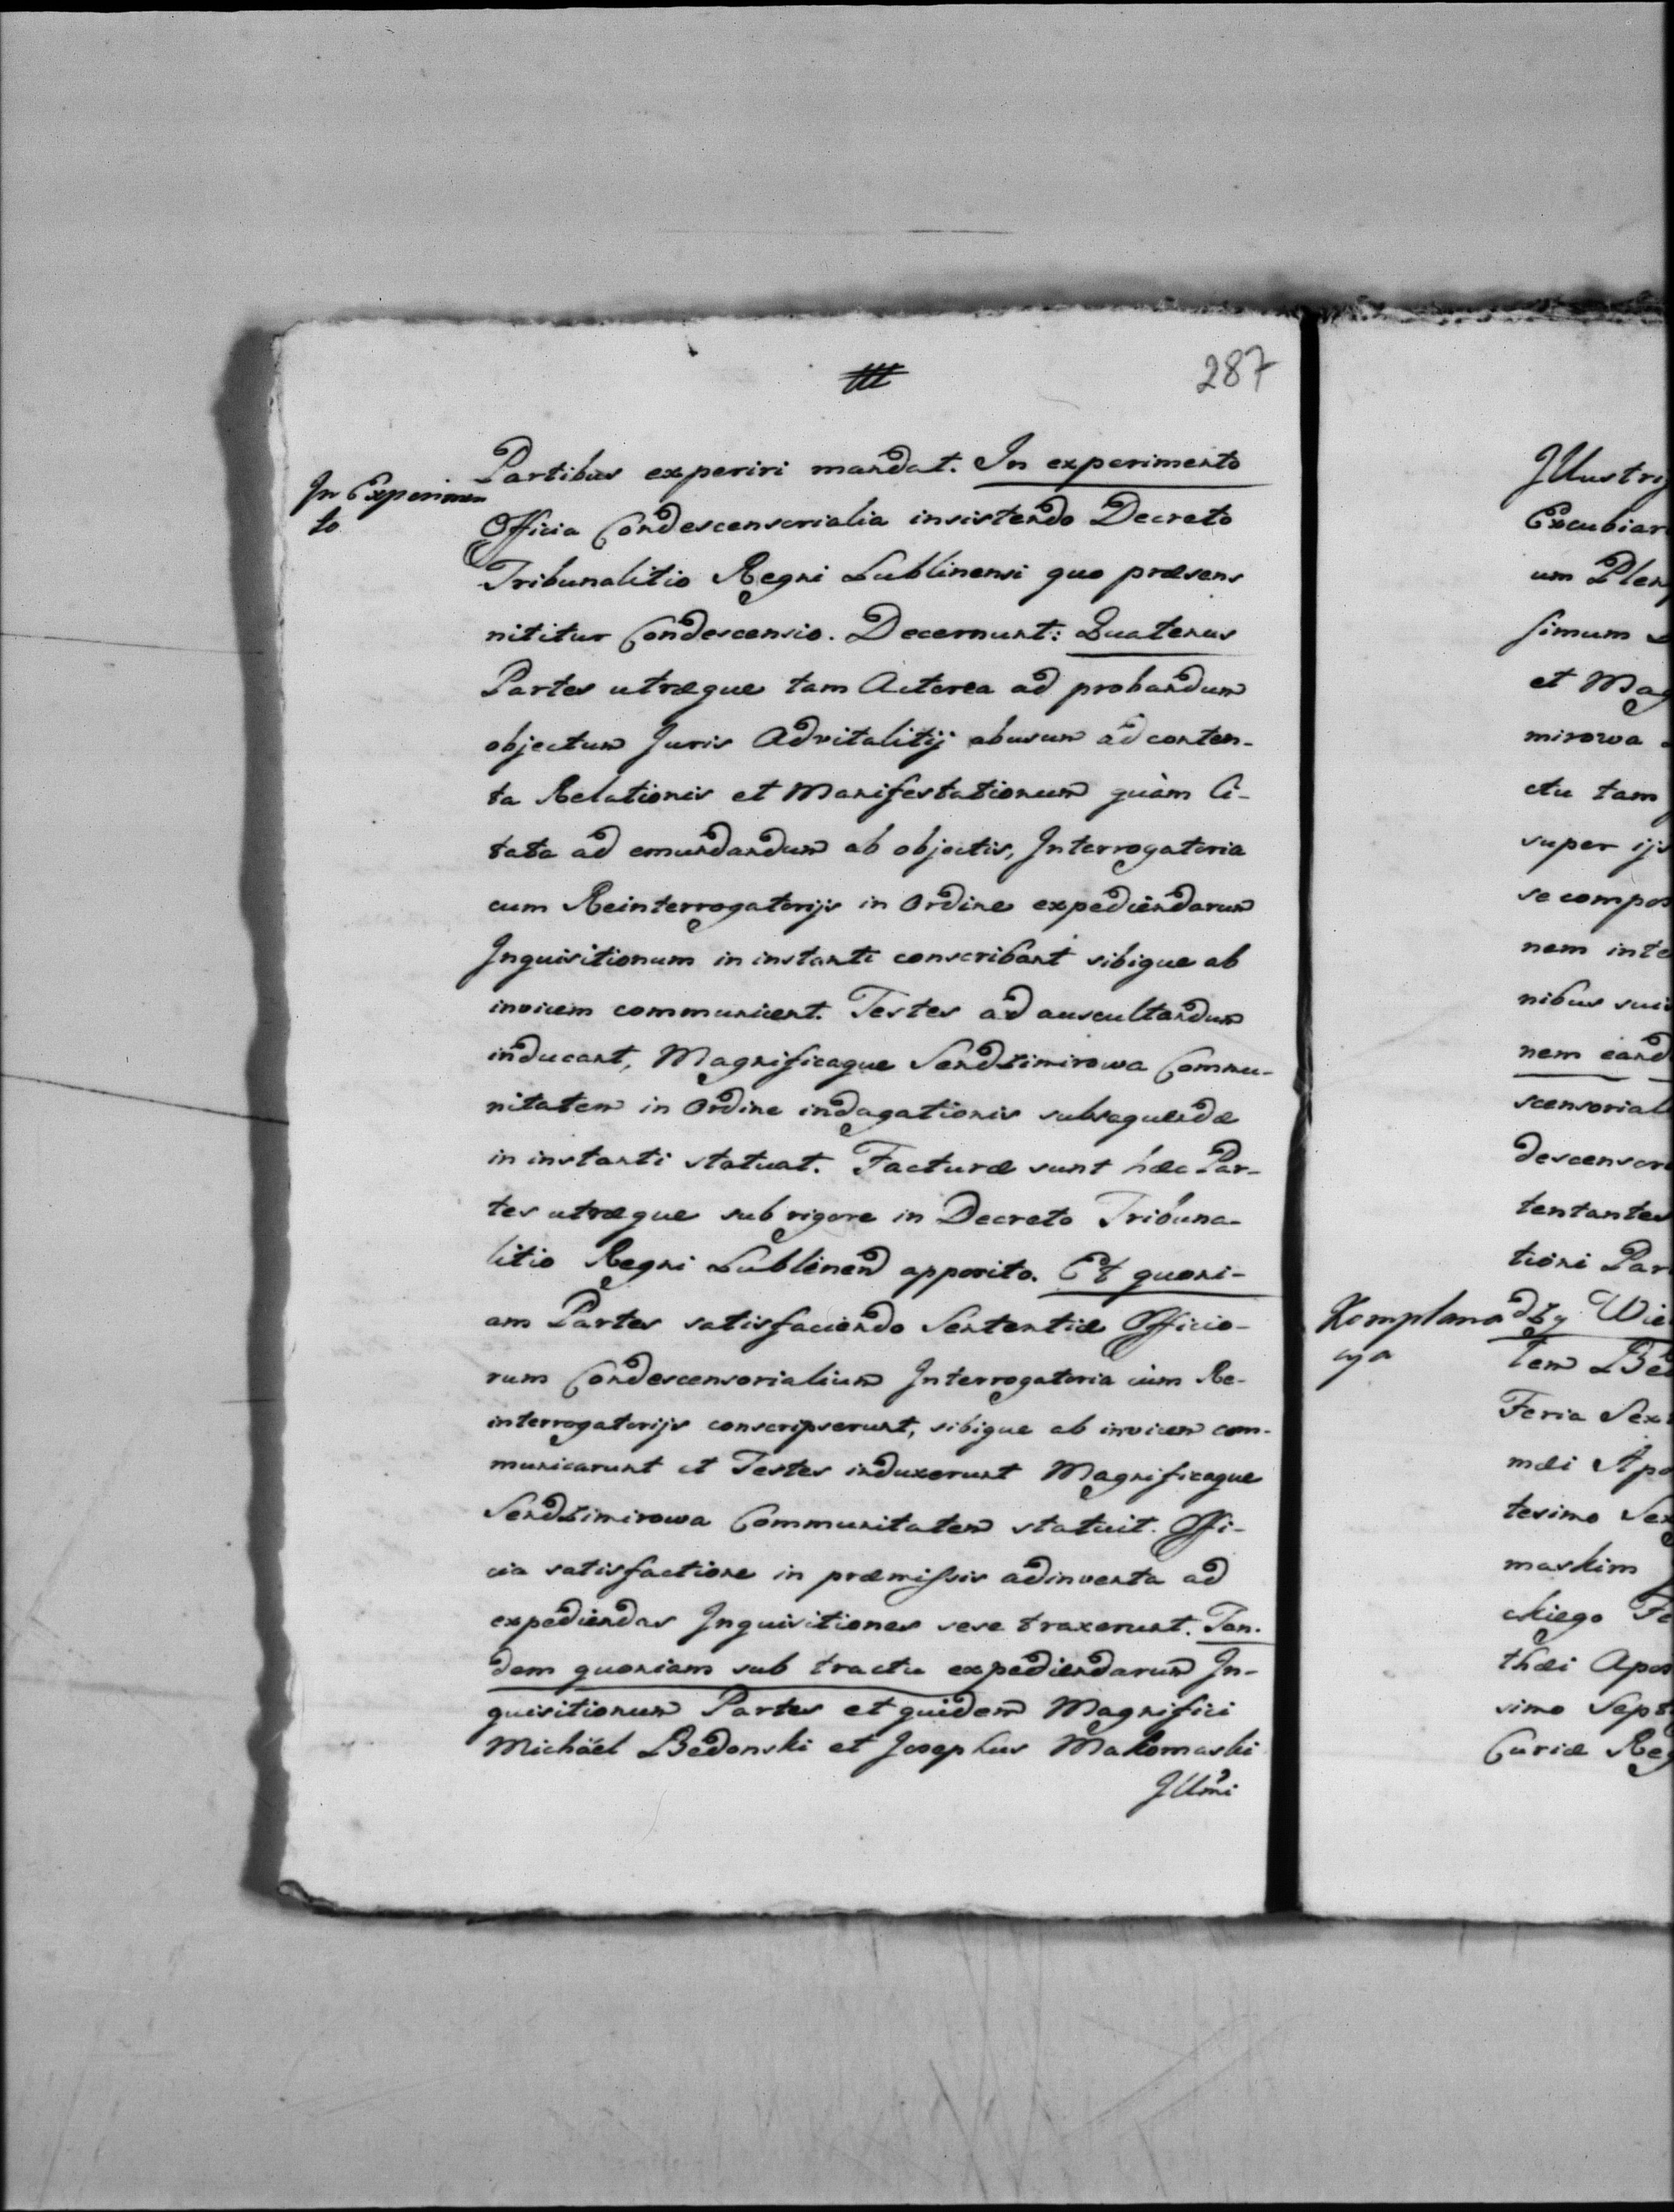 287
In Experimen
to
Partibus experiri mandat. In experimento
Officia Condescensorialia insistendo Decreto
Tribunalitio Regni Lublinensi quo præsens
nititur Condescensio. Decernunt: Quatenus
Partes utræque tam Actorea ad probandum
objectum Juris Advitalitij abusum ad conten-
ta Relationis et Manifestationum quàm Ci-
tata ad emundandum ab objectis, Interrogatoria
cum Reinterrogatorijs in Ordine expediendarum
Inquisitionum in instanti conscribant sibique ab
invicem communicent. Testes ad auscultandum
inducant, Magnificaque Sendzimirowa Commu-
nitatem in Ordine indagationis subsequendæ
in instanti statuat. Facturæ sunt hæc Par-
tes utræque sub rigore in Decreto Tribuna-
litio Regni Lublinen apposito. Et quoni-
am Partes satisfaciendo Sententiæ Officio-
rum Condescensorialium Interrogatoria cum Re-
interrogatorijs conscripserunt, sibique ab invicem com-
municarunt et Testes induxerunt Magnificaque
Sendzimirowa Communitatem statuit. Offi-
cia satisfactione in præmissis adinventa ad
expediendas Inquisitiones sese traxerunt. Tan-
dem quoniam sub tractu expediendarum In-
quisitionum Partes et quidem Magnifici
Michäel Bedonski et Josephus Makomaski
Illmi
Illustri
Excubiar
um Plen
simum
et Mag
mirowa
ctu tam
super ijs
se compos
nem inte
nibus sui
nem eand
scensorial
descensor
tentantes
tioni Par
Komplana
cya
dzy Wie
tem Bed
Feria Sex
mæi Apo
tesimo Sex
maskim
ckiego Fe
thæi Apos
simo Sept
Curiæ Reg